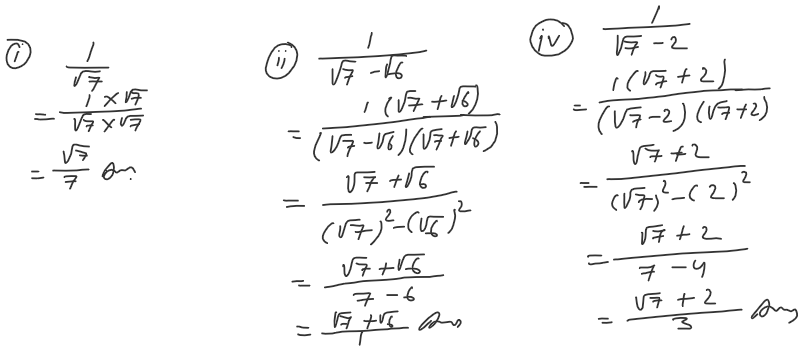 (i) 1/√7
= 1×√7/√7×√7
= √7/7 Ans
(ii) 1/√7-√6
= 1(√7+√6)/(√7-√6)(√7+√6)
= √7+√6/(√7)²-(√6)²
= √7+√6/7-6
= √7+√6/1 Ans
(iv) 1/√7-2
= 1(√7+2)/(√7-2)(√7+2)
= √7+2/(√7)²-(2)²
= √7+2/7-4
= √7+2/3 Ans